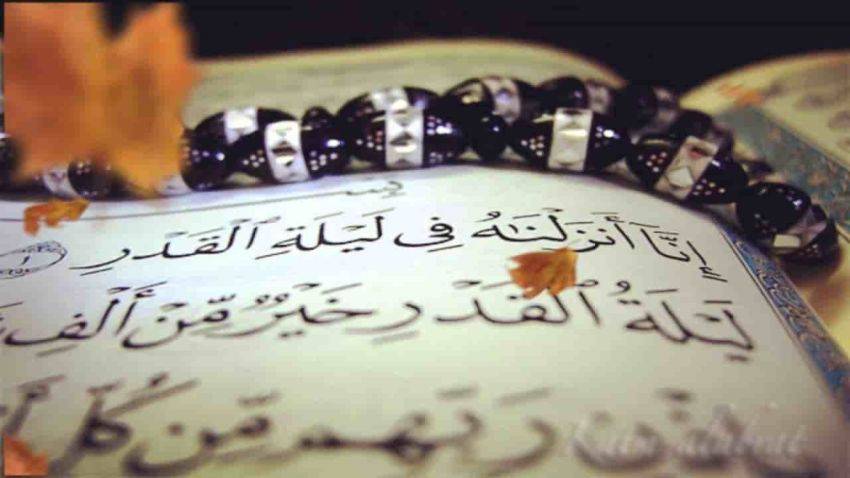 إِنَّآ أَنزَلْنَـٰهُ فِى لَيْلَةِ ٱلْقَدْرِ ١
لَيْلَةُ ٱلْقَدْرِ خَيْرٌ مِّنْ أَلْفِ
رَبِّهِم مِّن كُلِّ